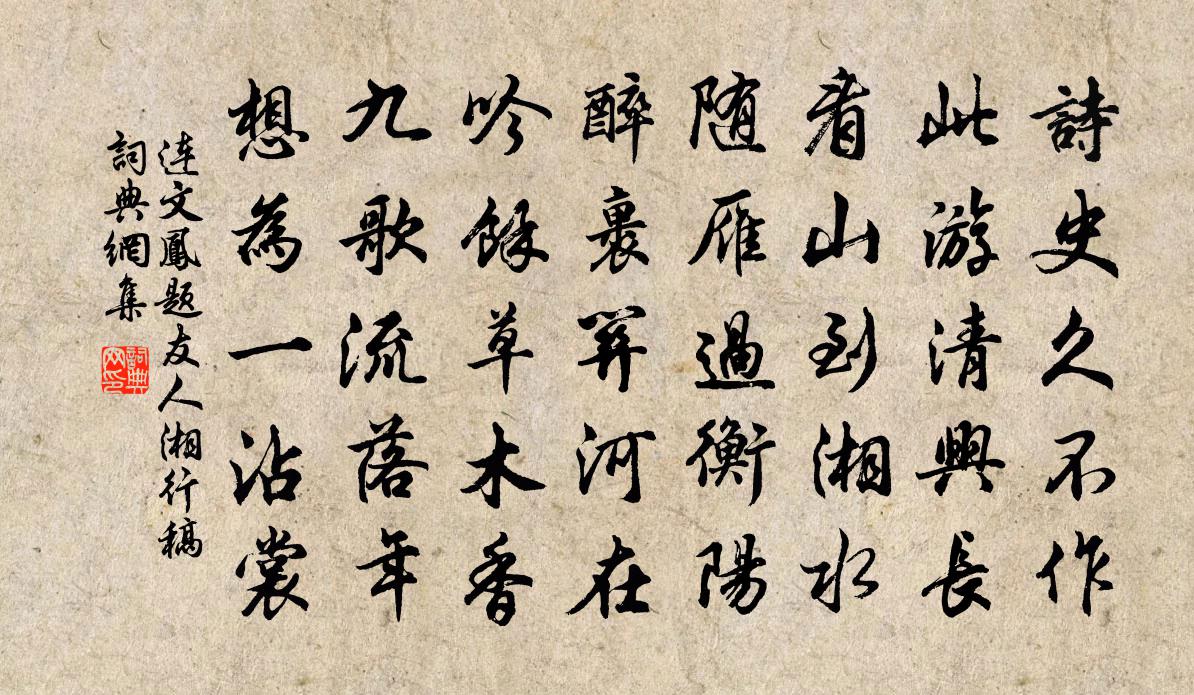 詩史久不作
此游清興長
看山到湘水
随雁過衡陽
醉裏關河在
吟餘草木香
九歌流落年
想為一沾裳
連文鳳題友人湘行稿
詞典網集
詞典网印